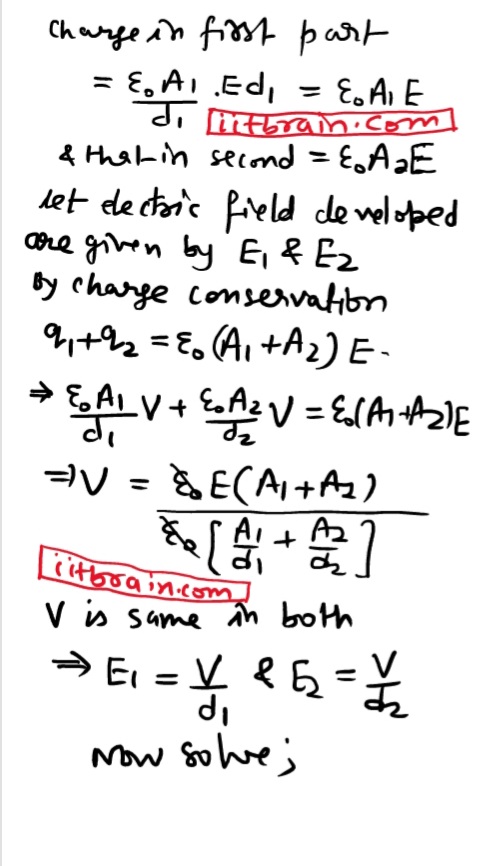 Charge in first part
= ε₀A₁/d₁ .Ed₁ = ε₀A₁E
iitbrain.com
& that in second = ε₀A₂E
let electric field developed
are given by E₁ & E₂
By charge conservation
q₁+q₂ = ε₀(A₁+A₂)E.
⇒ ε₀A₁/d₁ V + ε₀A₂/d₂ V = ε₀(A₁+A₂)E
⇒ V = ε₀E(A₁+A₂) / ε₀[A₁/d₁ + A₂/d₂]
iitbrain.com
V is same in both
⇒ E₁ = V/d₁ & E₂ = V/d₂
Now solve;